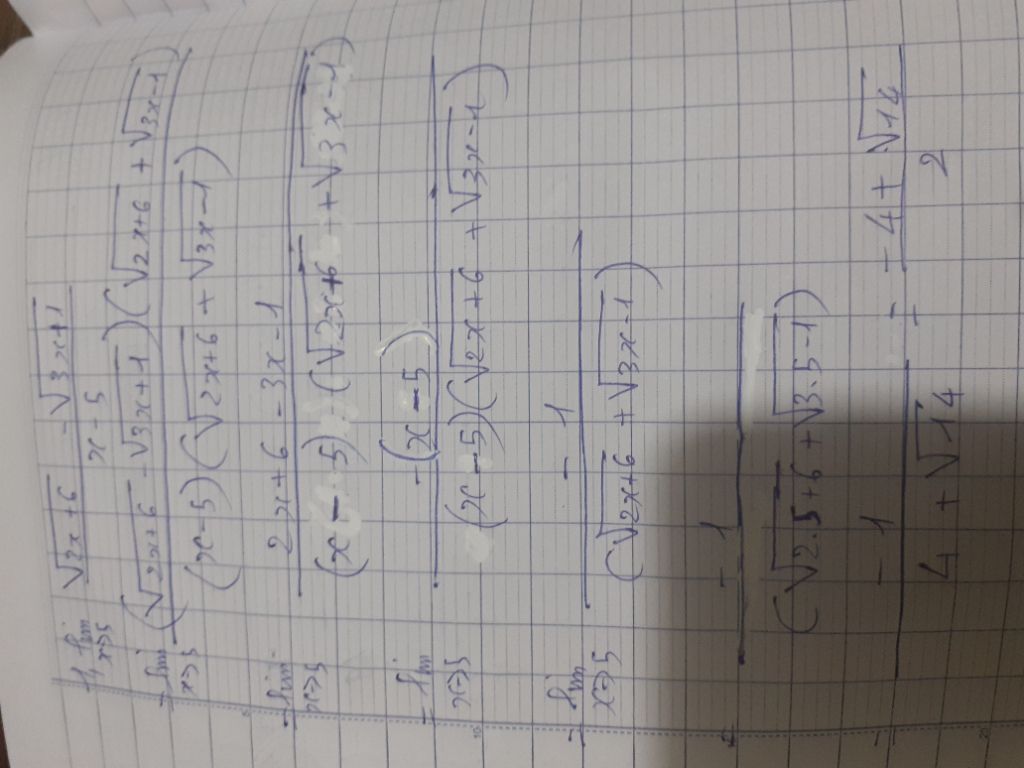 1, lim x→5 (√(2x+6) - √(3x+1))/(x-5)
= lim x→5 ((√(2x+6) - √(3x+1))(√(2x+6) + √(3x-1)))/((x-5)(√(2x+6) + √(3x-1)))
= lim x→5 (2x+6-3x-1)/((x-5)(√(2x+6) + √(3x-1)))
= lim x→5 (-(x-5))/((x-5)(√(2x+6) + √(3x-1)))
= lim x→5 (-1)/((√(2x+6) + √(3x-1)))
= (-1)/((√(2.5+6) + √(3.5-1)))
= (-1)/(4+√14) = (-4+√14)/2